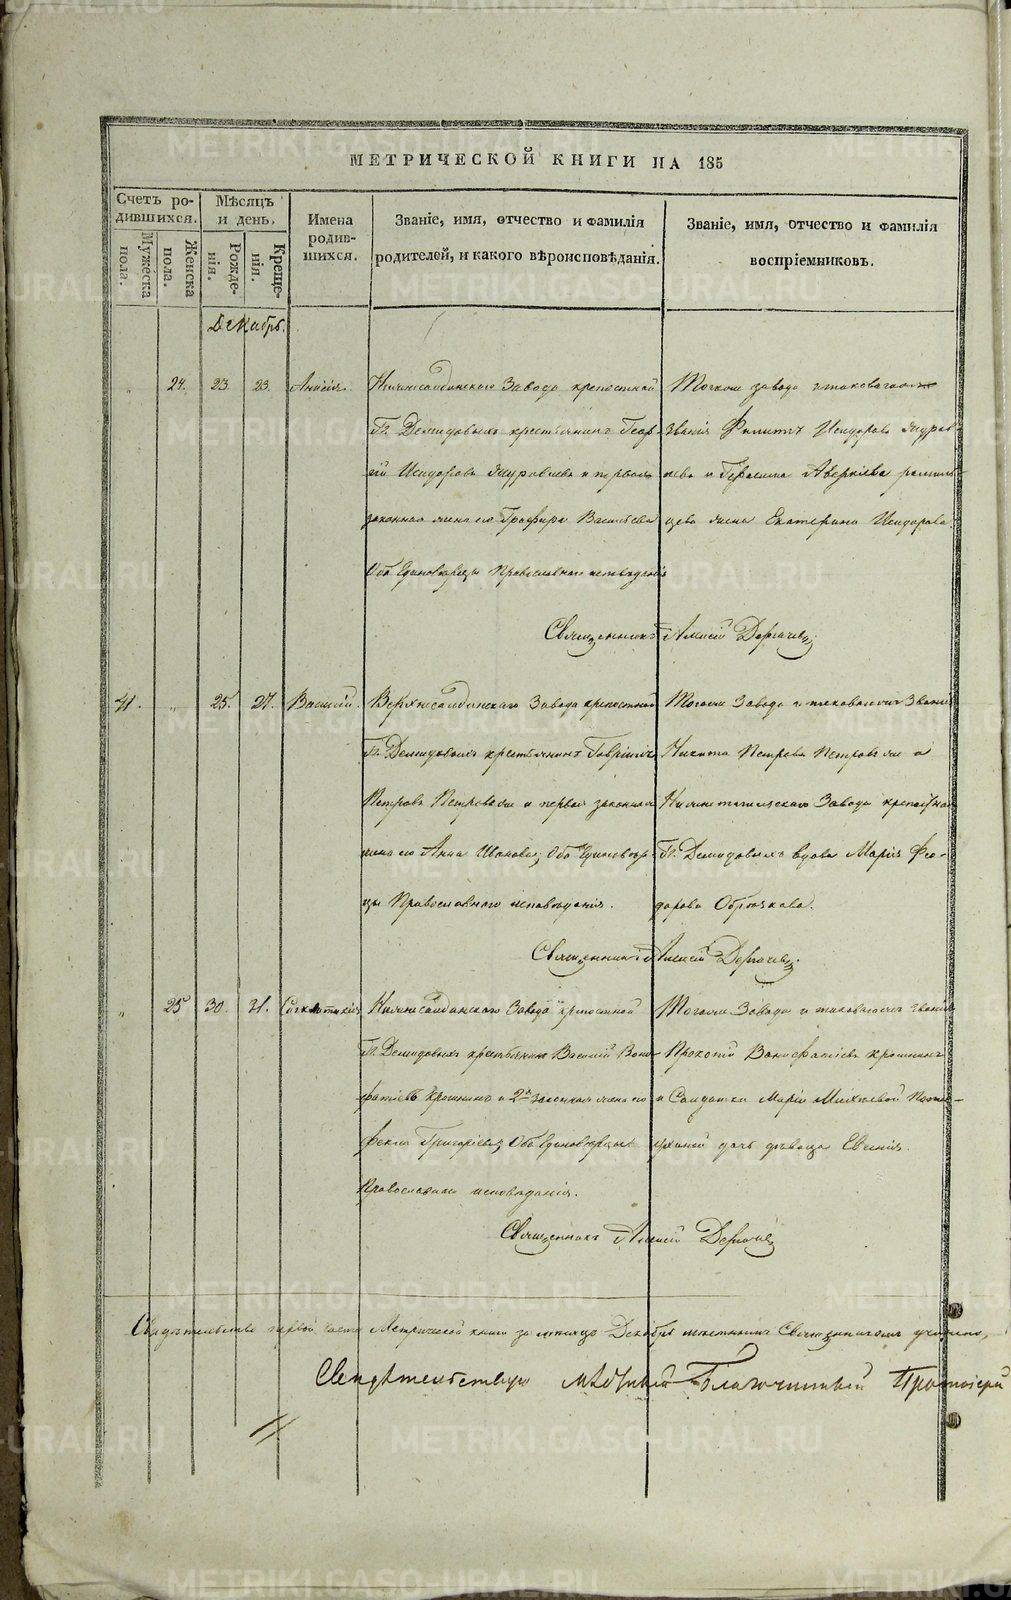 МЕТРИЧЕСКОЙ КНИГИ НА 185
Счетъ ро-
дившихся.
Мужеска
пола.
Женска
пола.
Мѣсяцъ
и день.
Рожде-
нія.
Креще-
нія.
Имена
родив-
шихся.
Званіе, имя, отчество и фамилія
родителей, и какого вѣроисповѣданія.
Званіе, имя, отчество и фамилія
воспріемниковъ.
Декабрь.
24. 23. 23. Анисія.
Нижнесалдинскаго Завода крепостной
Гг. Демидовыхъ крестьянинъ Геор-
гій Исидоровъ Журавлевъ и первая
законная жена его Васильева
Оба Единоверцы Православнаго исповѣданія
Тогоже завода и таковагоже
званія Филиппъ Исидоровъ Журав-
левъ и Герасима Аверкіева
жена Екатерина Исидорова.
Священникъ Алексій Дергачевъ
41. " 25. 27. Василій.
Верхнесалдинскаго Завода крепостной
Гг. Демидовыхъ крестьянинъ Гавріилъ
Петровъ Петровыхъ и первая законная
жена его Анна Иванова; Оба Единовер-
цы Православнаго исповѣданія.
Тогоже Завода и таковагоже Званія
Никита Петровъ Петровыхъ и
Нижнетагильскаго Завода крепостная
Гг. Демидовыхъ вдова Марія Фео-
дорова
Священникъ Алексій Дергачевъ.
" 25 30. 31.
Нижнесалдинскаго Завода крепостной
Гг. Демидовыхъ крестьянинъ Василій Вони-
фатіевъ и 2я законная жена его
Фекла Григоріева; Оба Единоверцы
Православнаго исповѣданія.
Тогоже Завода и таковагоже званія
Прокопій Вонифатіевъ
и Солдатки Маріи
дочь девица Евгенія.
Священникъ Алексій Дергачевъ
первой части Метрической книги за месяцъ Декабрь местнымъ Священникомъ учинено,
Свидѣтельствую мѣстный Благочинный Протоіерей